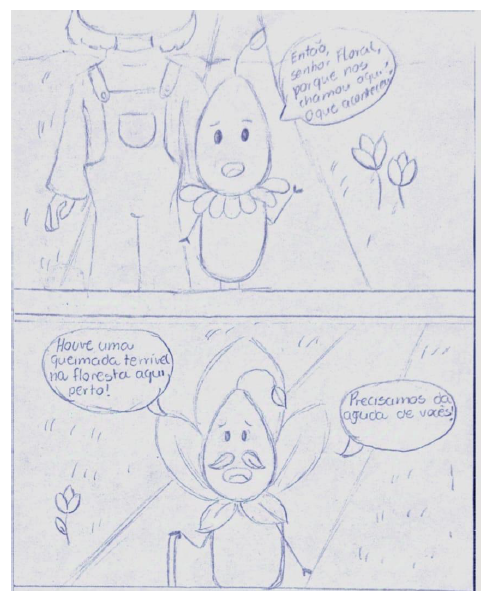 Então,
senhor Floral,
porque nos
chamou aqui?
O que aconteceu?
Houve uma
queimada terrível
na floresta aqui
perto!
Precisamos da
ajuda de vocês!